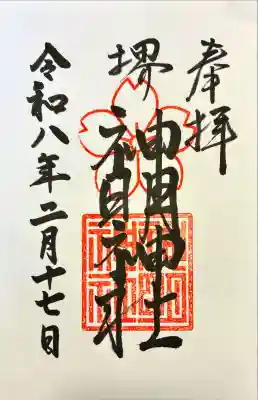 奉拝
堺
神明神社
令和八年二月十七日